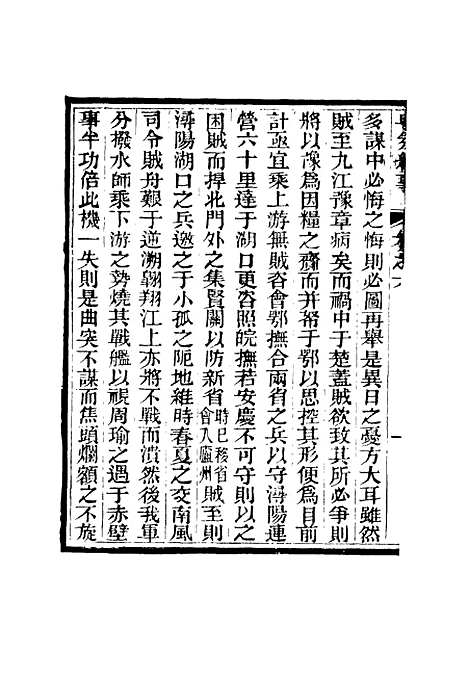 多謀中必悔之悔則必圖再舉是異日之憂方大耳雖然
賊至九江豫章病矣而禍中于楚蓋賊欲致其所必爭則
將以豫為因糧之齎而并帑于鄂以思控其形便為目前
計亟宜乘上游無賊咨會鄂撫合兩省之兵以守潯陽連
營六十里達于湖口更咨照皖撫若安慶不可守則以之
困賊而捍北門外之集賢關以防新省時巳移省會入廬州賊至則
潯陽湖口之兵邀之于小孤之阨地維時春夏之交南風
司令賊舟艱于逆溯翱翔江上亦將不戰而潰然後我軍
分撥水師乘下游之勢燒其戰艦以視周瑜之遇于赤壁
事半功倍此機一失則是曲突不謀而焦頭爛額之不旋